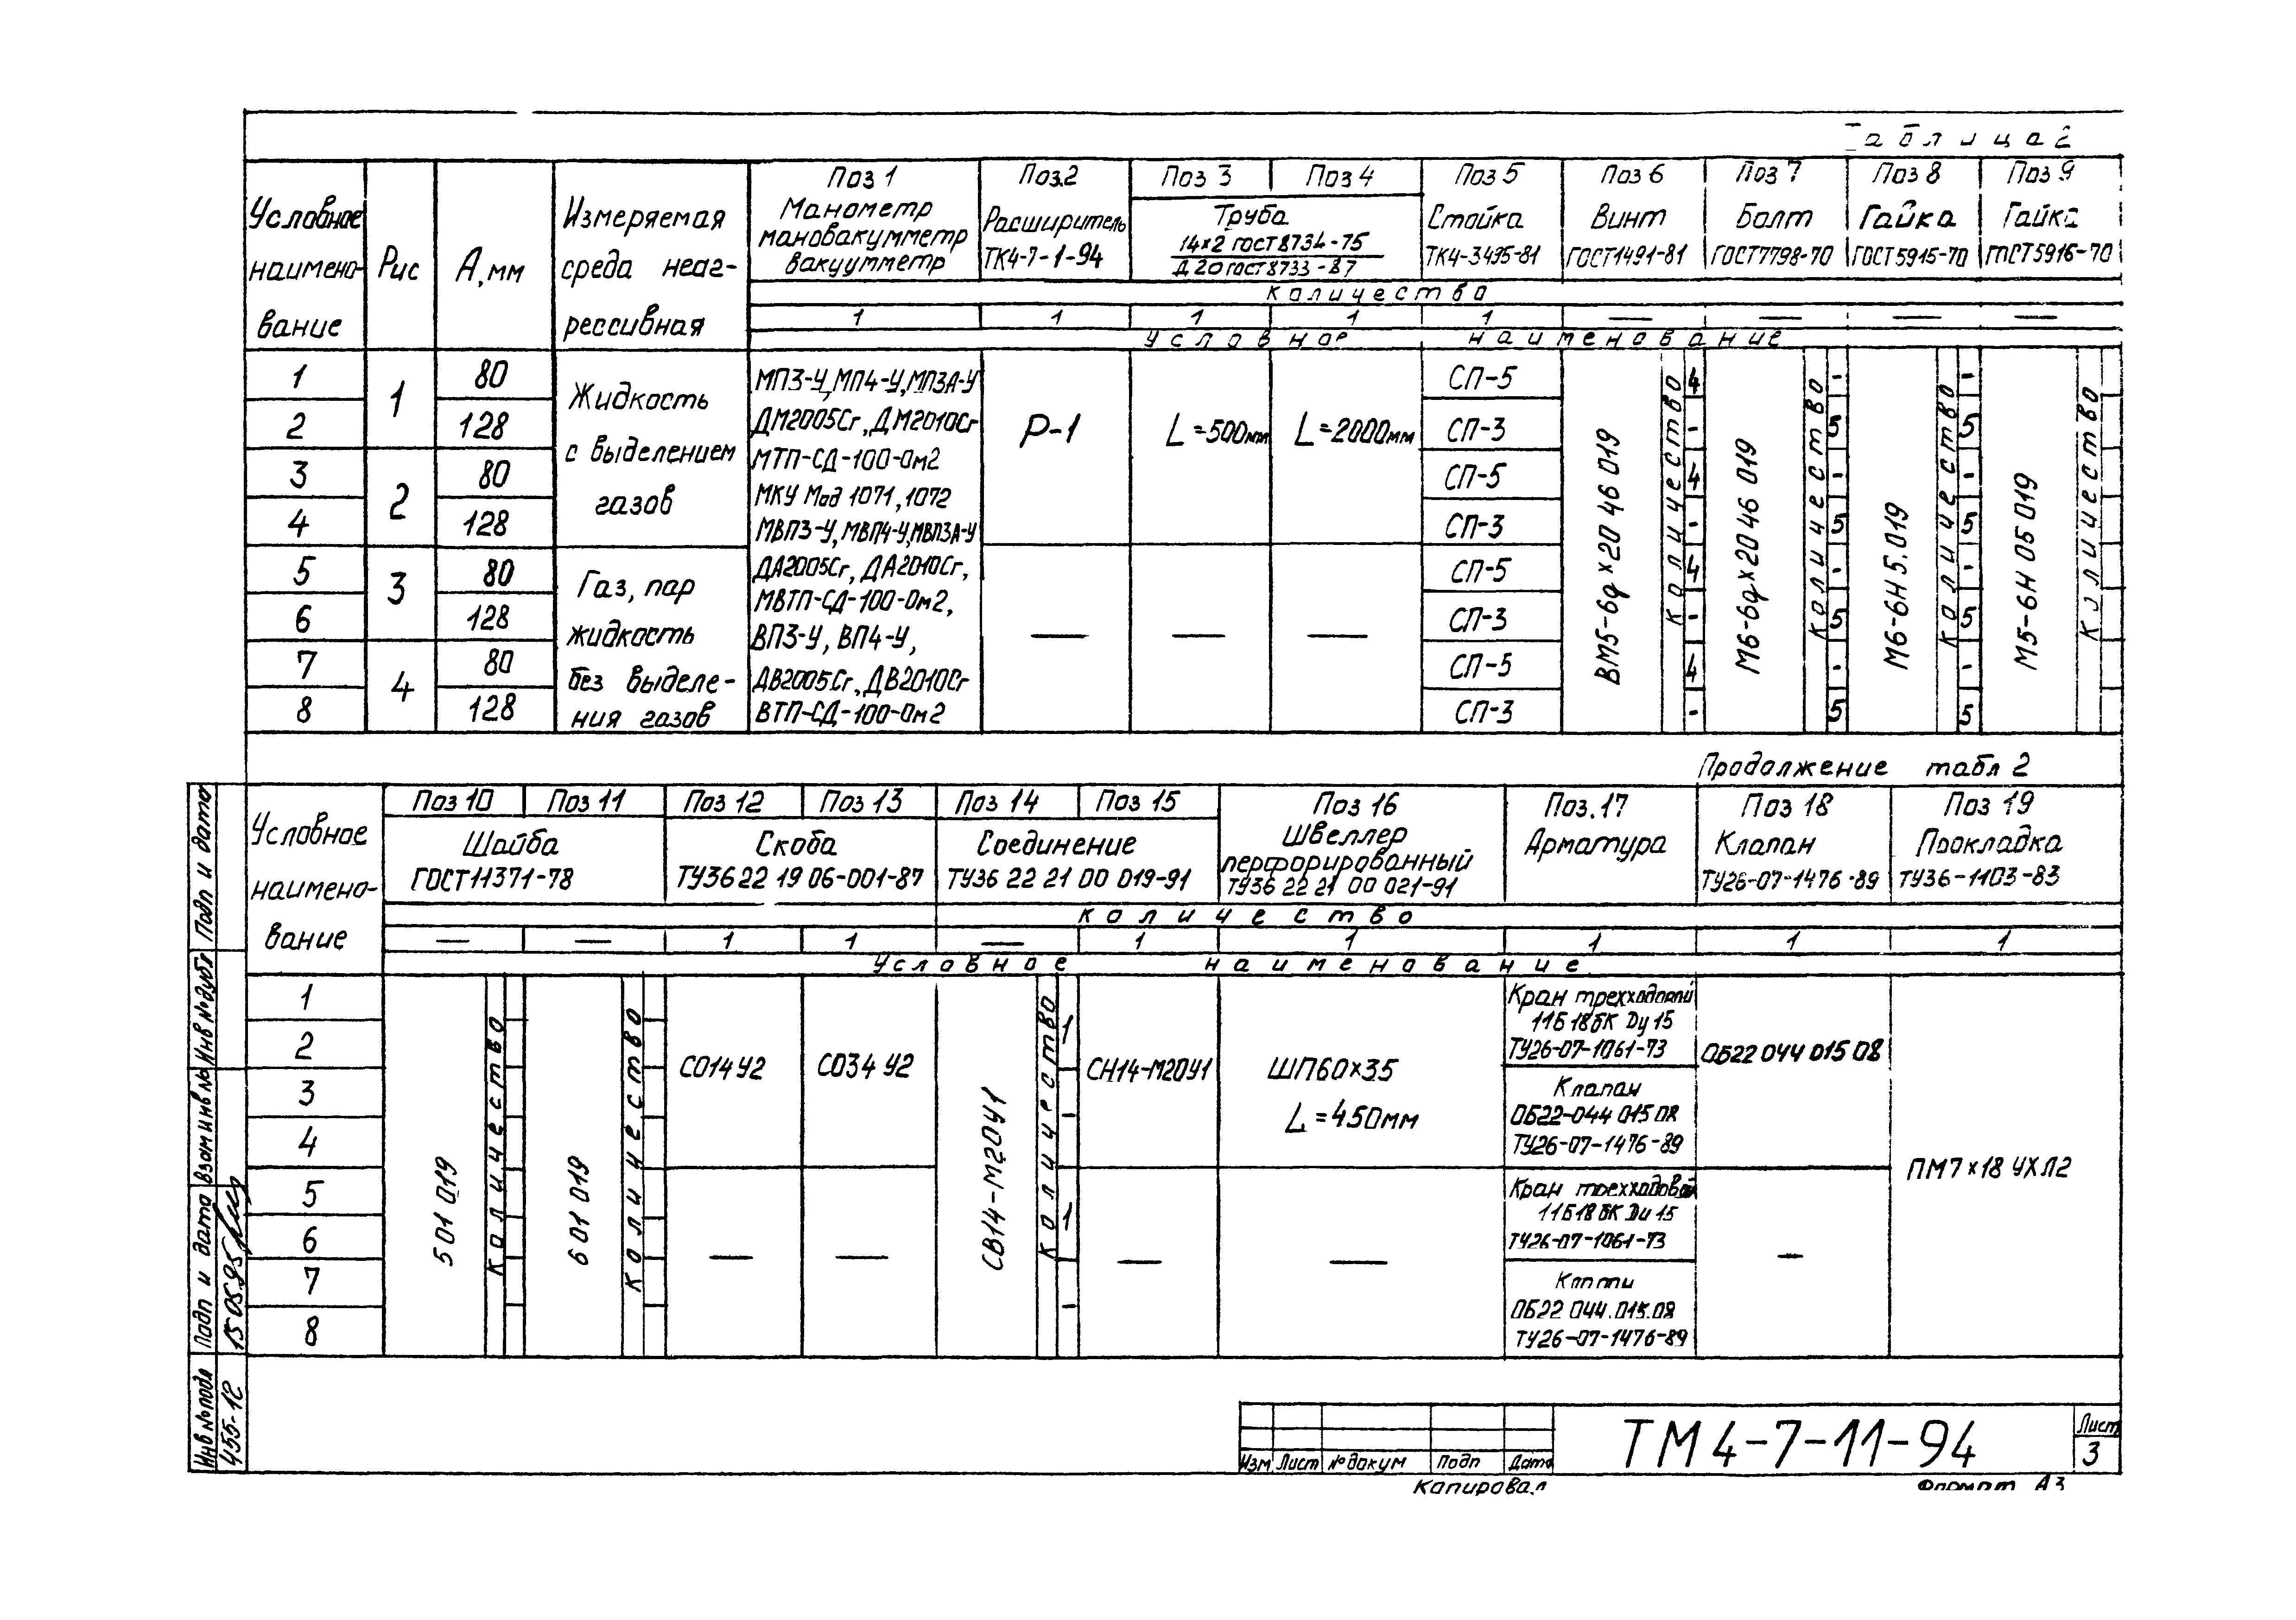 Таблица 2
Условное наименование
Рис
А, мм
Измеряемая среда неагрессивная
Поз 1
Манометр
мановакумметр
вакуумметр
Поз.2
Расширитель
ТК4-7-1-94
Поз 3
Поз 4
Труба
14×2 ГОСТ8734-75
Д 20 ГОСТ8733-87
Поз 5
Стойка
ТК4-3495-81
Поз 6
Винт
ГОСТ1491-81
Поз 7
Болт
ГОСТ7798-70
Поз 8
Гайка
ГОСТ5915-70
Поз 9
Гайка
ГОСТ5916-70
Количество
1 1 1 1 1 — — — —
Условное наименование
1 2 3 4 5 6 7 8
1 2 3 4
80
128
80
128
80
128
80
128
Жидкость
с выделением
газов
Газ, пар
жидкость
без выделе-
ния газов
МП3-У, МП4-У, МП3А-У
ДМ2005Сг, ДМ2010Сг
МТП-СД-100-Ом2
МКУ Мод 1071, 1072
МВП3-У, МВП4-У, МВП3А-У
ДА2005Сг, ДА2010Сг,
МВТП-СД-100-Ом2,
ВП3-У, ВП4-У,
ДВ2005.Сг, ДВ2010Сг
ВТП-СД-100-Ом2
Р-1
—
L=500мм
—
L=2000мм
—
СП-5
СП-3
СП-5
СП-3
СП-5
СП-3
СП-5
СП-3
ВМ5-6g×20 46 019
Количество
4 - 4 - 4 - 4 -
М6-6g×20 46 019
Количество
- 5 - 5 - 5 - 5
М6-6Н 5.019
Количество
- 5 - 5 - 5 - 5
М5-6Н 05 019
Количество
Продолжение табл 2
Условное
наимено-
вание
Поз 10
Поз 11
Шайба
ГОСТ11371-78
Поз 12
Поз 13
Скоба
ТУ36 22 19 06-001-87
Поз 14
Поз 15
Соединение
ТУ36 22 21 00 019-91
Поз 16
Швеллер
перфорированный
ТУ36 22 21 00 021-91
Поз.17
Арматура
Поз 18
Клапан
ТУ26-07-1476-89
Поз 19
Прокладка
ТУ36-1103-83
Количество
— — 1 1 — 1 1 1 1 1
Условное наименование
1 2 3 4 5 6 7 8
5 01 019
Количество
6 01 019
Количество
СО14 У2
—
СО34 У2
—
СВ14-М20У1
Количество
1 - 1 -
СН14-М20У1
—
ШП60×35
L=450мм
—
Кран трехходовой
11Б18бК Ду 15
ТУ26-07-1061-73
Клапан
ОБ22-044 015 08
ТУ26-07-1476-89
Кран трехходовой
11Б18бК Ду 15
ТУ26-07-1061-73
ОБ22 044.015.08
ТУ26-07-1476-89
ОБ22 044 015 08
—
ПМ7×18 УХЛ2
Подп и дата
Инв № дубл
Взам инв №
Подп и дата
15 05.95
Инв № подл
455-12
Изм Лист № докум Подп Дата
ТМ4-7-11-94
Лист
3
Копировал
Формат А3